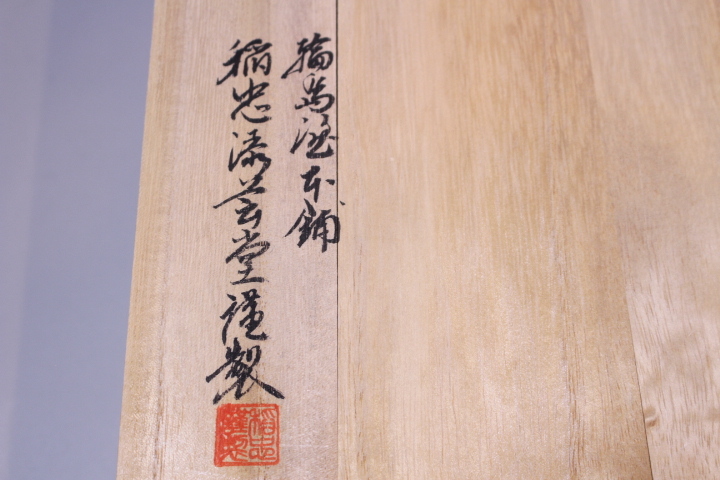 輪島塗本舗
稲忠漆芸堂謹製